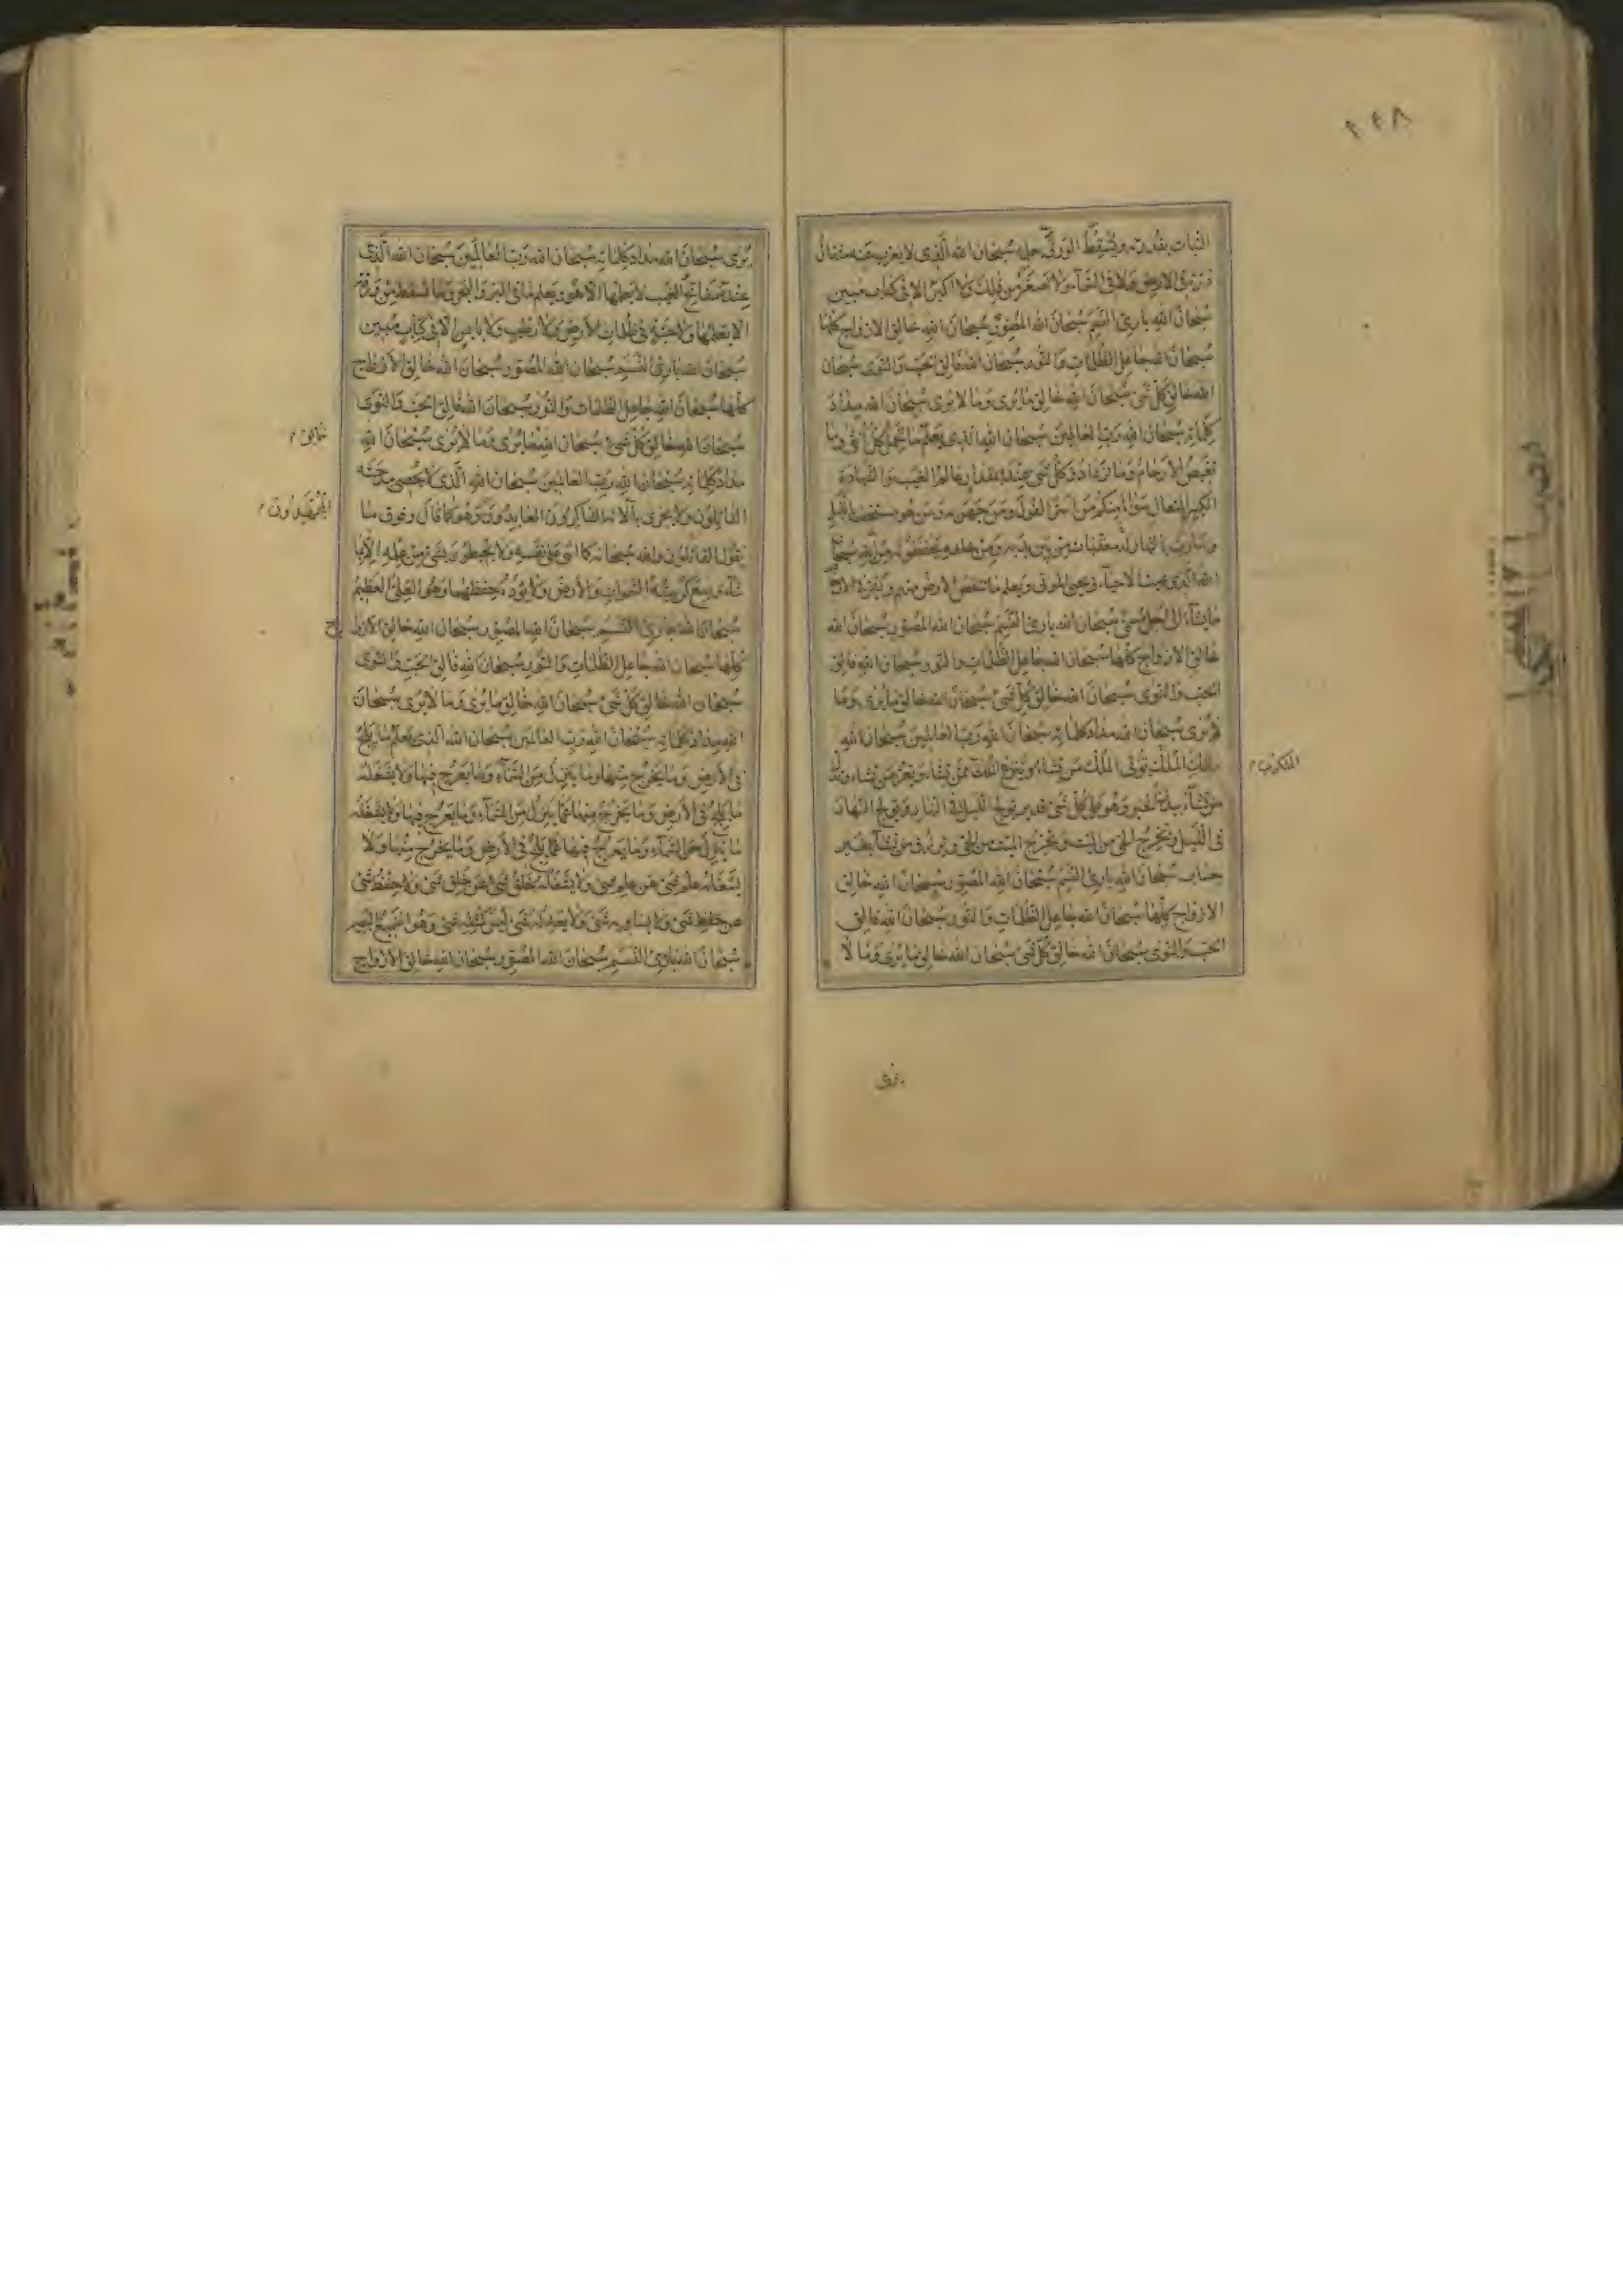 النبات بقدرته ويسقط الورق بعلمه سبحان الله الذى لا يعزب عنه مثقال
ذرة فى الارض ولا فى السماء ولا اصغر من ذلك ولا اكبر الا فى كتاب مبين
سبحان الله بارئ النسم سبحان الله المصور سبحان الله خالق الازواج كلها
سبحان الله جاعل الظلمات والنور سبحان الله فالق الحب والنوى سبحان
الله خالق كل شئ سبحان الله خالق ما يرى وما لا يرى سبحان الله مداد
كلماته سبحان الله رب العالمين سبحان الله الذى يعلم ما تحمل كل انثى وما
تغيض الارحام وما تزداد وكل شئ عنده بمقدار عالم الغيب والشهادة
الكبير المتعال سواء منكم من اسر القول ومن جهر به ومن هو مستخف بالليل
وسارب بالنهار له معقبات من بين يديه ومن خلفه يحفظونه من امر الله سبحان
الله الذى يميت الاحياء ويحيى الموتى ويعلم ما تنقص الارض منهم ويقر فى الارحام
ما يشاء الى اجل مسمى سبحان الله بارئ النسم سبحان الله المصور سبحان الله
خالق الازواج كلها سبحان الله جاعل الظلمات والنور سبحان الله فالق
الحب والنوى سبحان الله خالق كل شئ سبحان الله خالق ما يرى وما
لا يرى سبحان الله مداد كلماته سبحان الله رب العالمين سبحان الله
مالك الملك تؤتى الملك من تشاء وتنزع الملك ممن تشاء وتعز من تشاء وتذل
من تشاء بيدك الخير وهو على كل شئ قدير تولج الليل فى النهار وتولج النهار
فى الليل وتخرج الحى من الميت وتخرج الميت من الحى وترزق من تشاء بغير
حساب سبحان الله بارئ النسم سبحان الله المصور سبحان الله خالق
الازواج كلها سبحان الله جاعل الظلمات والنور سبحان الله فالق
الحب والنوى سبحان الله خالق كل شئ سبحان الله خالق ما يرى وما لا
يرى
يرى سبحان الله مداد كلماته سبحان الله رب العالمين سبحان الله الذى
عنده مفاتح الغيب لا يعلمها الا هو ويعلم ما فى البر والبحر وما تسقط من ورقة
الا يعلمها ولا حبة فى ظلمات الارض ولا رطب ولا يابس الا فى كتاب مبين
سبحان الله بارئ النسم سبحان الله المصور سبحان الله خالق الازواج
كلها سبحان الله جاعل الظلمات والنور سبحان الله فالق الحب والنوى
سبحان الله خالق كل شئ سبحان الله ما يرى وما لا يرى سبحان الله
خالق م
مداد كلماته سبحان الله رب العالمين سبحان الله الذى لا يحصى مدحته
القائلون ولا يجزى بآلائه الشاكرون العابدون وهو كما قال وفوق ما
يقول القائلون والله سبحانه كما اثنى على نفسه ولا يحيطون بشئ من علمه الا بما
شاء وسع كرسيه السموات والارض ولا يؤده حفظهما وهو العلى العظيم
سبحان الله بارئ النسم سبحان الله المصور سبحان الله خالق الازواج
كلها سبحان الله جاعل الظلمات والنور سبحان الله فالق الحب والنوى
سبحان الله خالق كل شئ سبحان الله خالق ما يرى وما لا يرى سبحان
الله مداد كلماته سبحان الله رب العالمين سبحان الله الذى يعلم ما يلج
فى الارض وما يخرج منها وما ينزل من السماء وما يعرج فيها ولا يشغله
ما يلج فى الارض وما يخرج منها عما ينزل من السماء وما يعرج فيها ولا يشغله
ما ينزل من السماء وما يعرج فيها عما يلج فى الارض وما يخرج منها ولا
يشغله علم شئ عن علم شئ ولا يشغله خلق شئ عن خلق شئ ولا حفظ شئ
عن حفظ شئ ولا يساويه شئ ولا يعدله شئ ليس كمثله شئ وهو السميع البصير
سبحان الله بارئ النسم سبحان الله المصور سبحان الله خالق الازواج